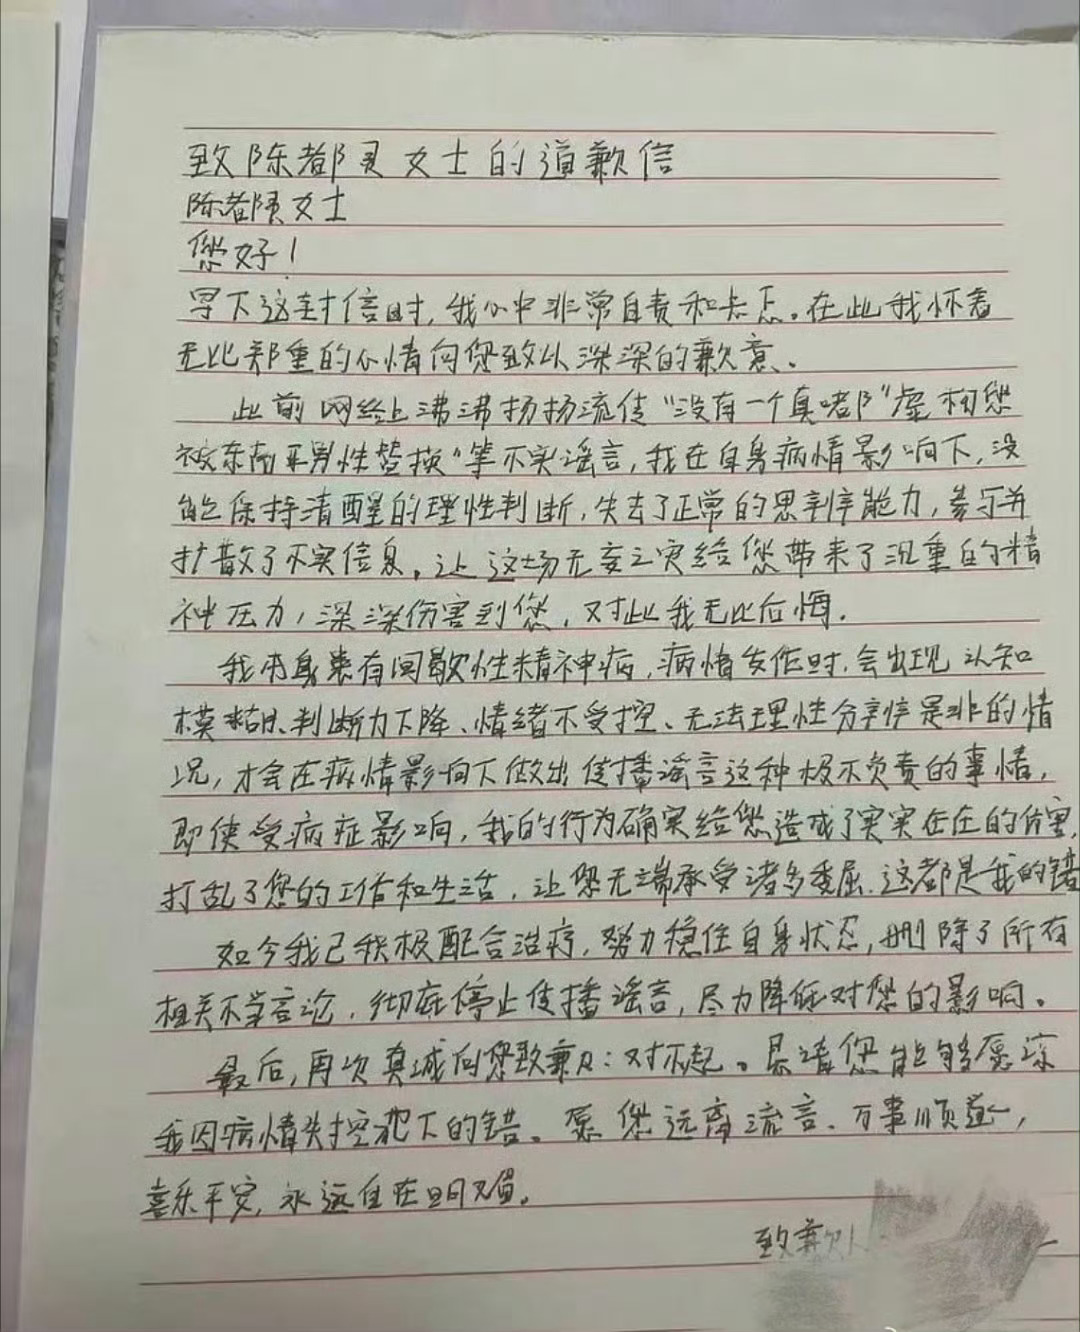 致陈都灵女士的道歉信
陈都灵女士
您好！
写下这封信时，我心中非常自责和忐忑。在此我怀着
无比郑重的心情向您致以深深的歉意。
此前网络上沸沸扬扬流传“没有一个真嘟队”虚构您
被东南亚男性替换“等不实谣言，我在自身病情影响下，没
能保持清醒的理性判断，失去了正常的思辨能力，参与并
扩散了不实信息。让这场无妄之灾给您带来了沉重的精
神压力，深深伤害到您，对此我无比后悔.
我本身患有间歇性精神病，病情发作时.会出现认知
模糊、判断力下降、情绪不受控、无法理性分辨是非的情
况，才会在病情影响下做出传播谣言这种极不负责的事情，
即使受病症影响，我的行为确实给您造成了实实在在的伤害，
打乱了您的工作和生活，让您无端承受诸多委屈.这都是我的错
如今我已积极配合治疗，努力稳住自身状态，删除了所有
相关不当言论，彻底停止传播谣言，尽力降低对您的影响。
最后，再次真诚向您致歉：对不起。恳请您能够原谅
我因病情失控犯下的错。愿您远离流言、万事顺遂，
喜乐平安，永远自在明媚。
致歉人